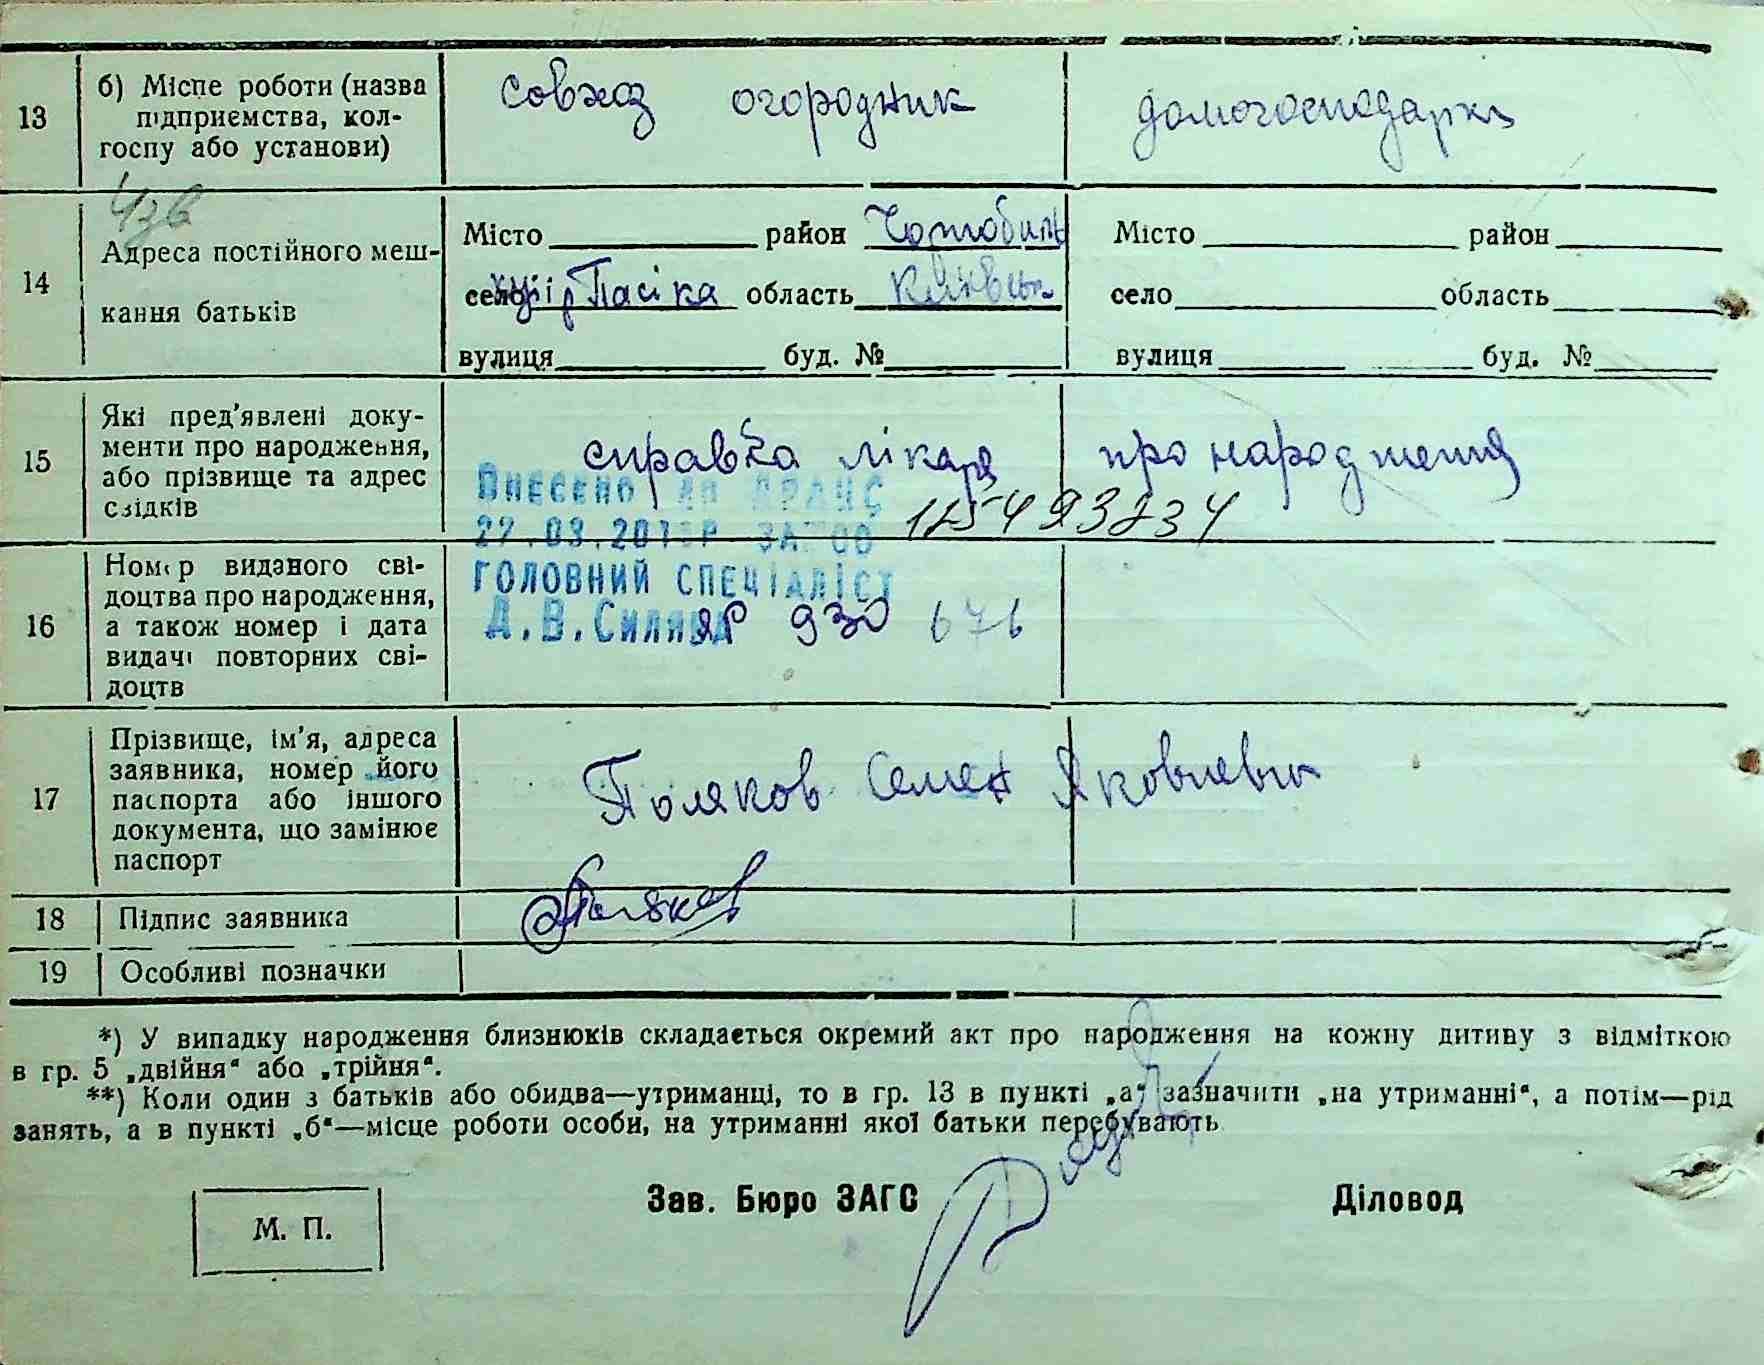 13
б) Місце роботи (назва
підприємства, кол-
госпу або установи)
совхоз огородник
домогосподарка
14
Адреса постійного меш-
кання батьків
Місто район Чорнобиль
село хутір Пасіка область Київськ
вулиця буд. №
Місто район
село область
вулиця буд. №
15
Які пред'явлені доку-
менти про народження,
або прізвище та адрес
свідків
справка лікаря про народження
ВНЕСЕНО ДО ДРАЦС
ГОЛОВНИЙ СПЕЦІАЛІСТ
16
Номер виданого сві-
доцтва про народження,
а також номер і дата
видачі повторних сві-
доцтв
Д.В.
930 676
17
Прізвище, ім'я, адреса
заявника, номер його
паспорта або іншого
документа, що замінює
паспорт
Поляков Семен Яковлевич
18
Підпис заявника
Поляков
19
Особливі позначки
*) У випадку народження близнюків складається окремий акт про народження на кожну дитину з відміткою
в гр. 5 „двійня“ або „трійня“.
**) Коли один з батьків або обидва—утриманці, то в гр. 13 в пункті „а“ зазначити „на утриманні“, а потім—рід
занять, а в пункті „б“—місце роботи особи, на утриманні якої батьки перебувають
М. П.
Зав. Бюро ЗАГС
Діловод